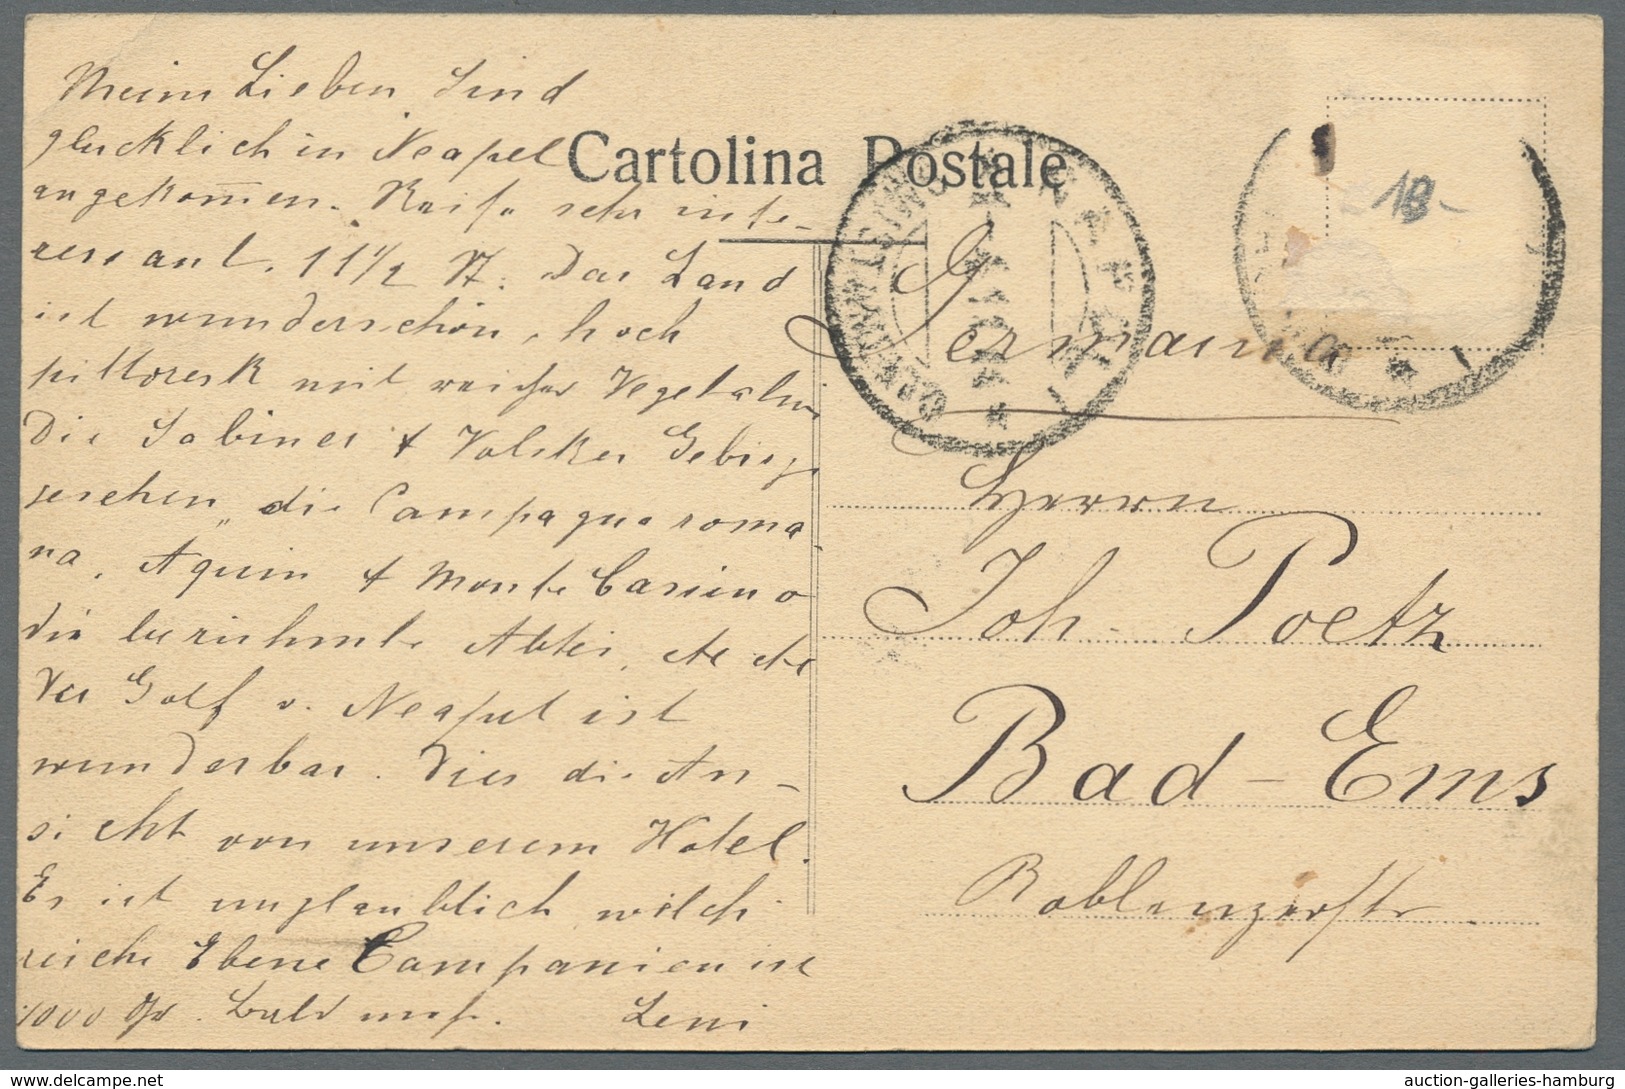 Meine Lieben, Sind
glücklich in Neapel
angekom̄en. Reise sehr inte-
ressant. 11 1/2 St. Das Land
ist wunderschön, hoch
pittoresk mit reicher Vegetation
Die Sabiner + Volsker Gebirge
gesehen, die Campagna roma-
na, Aquin + Monte Cassino
die berühmte Abtei, etc etc
Der Golf v. Neapel ist
wunderbar. Dies die An-
sicht von unserem Hotel.
Es ist unglaublich welch
reiche Ebene Campanien ist
1000 Gr. Bald mehr. Leni
Cartolina Postale
NAPOLI
18-
Germania
Herrn
Joh. Poetz
Bad-Ems
Koblenzerstr.
auction-galleries-hamburg